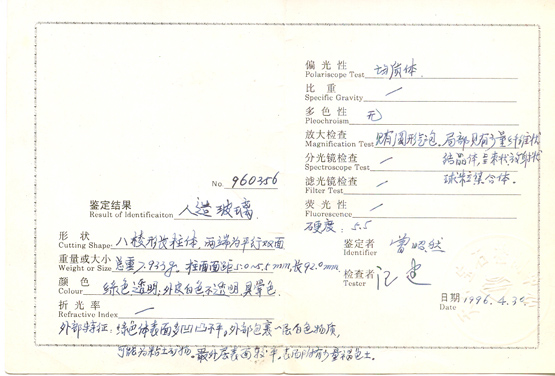 No. 960356
鉴定结果
Result of Identificaiton 人造玻璃
形 状
Cutting Shape: 八棱形长柱体, 两端为平行双面
重量或大小
Weight or Size 总重7.933g. 柱面面距5.0~5.5mm, 长92.0mm.
颜 色
Colour 绿色透明, 外皮白色不透明具晕色
折 光 率
Refractive Index —
外部特征: 绿色体表面多凹凸不平, 外部包裹一层白色物质,
可能为粘土矿物. 最外层表面较平,
偏 光 性
Polariscope Test 均质体.
比 重
Specific Gravity —
多 色 性
Pleochroism 无
放大检查
Magnification Test 见有圆形气包. 局部见有少量纤维状
分光镜检查 结晶体,
Spectroscope Test —
滤光镜检查 球粒集合体.
Filter Test —
荧 光 性
Fluorescence —
硬度: 5.5
鉴定者
Identifier
检查者
Tester
日期
Date 1996.4.30.